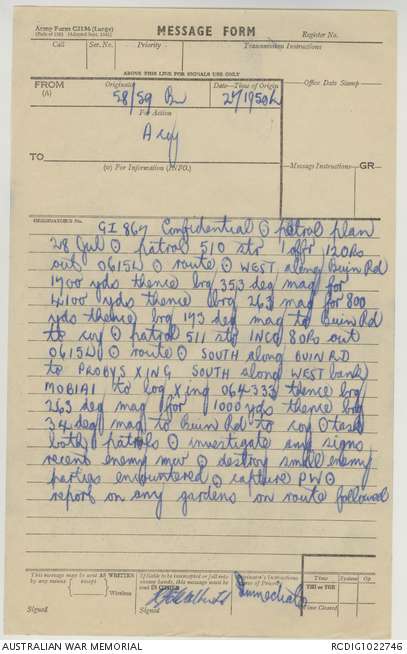 Army Form C2136 (Large)
MESSAGE FORM
Register No.
Call Ser. No. Priority Transmission Instructions
ABOVE THIS LINE FOR SIGNALS USE ONLY
FROM
(A)
Originator
58/59 Bn
Date-Time of Origin
271950L
Office Date Stamp
For Action
A coy
TO
(W) For Information (INFO.)
Message Instructions GR
ORIGINATOR'S No.
GI 867 Confidential ⊙ patrol plan
28 Jul ⊙ patrol 510 str 1 offr 12 ORs
out 0615L ⊙ route ⊙ WEST along Buin Rd
1700 yds thence brg 353 deg mag for
thence brg 263 mag for 800
yds thence brg 173 deg mag to Buin Rd
to coy ⊙ patrol 511 str 1NCO 8 ORs out
0615L ⊙ route ⊙ SOUTH along BUIN RD
to PROBYS XING SOUTH along WEST bank
MOBIAI to log Xing 064333 thence brg
263 deg mag for 1000 yds thence brg
34 deg mag to Buin Rd to coy ⊙ task
both patrols ⊙ investigate any signs
recent enemy mov ⊙ destroy small enemy
parties encountered ⊙ capture PW ⊙
report on any gardens on route followed
This message may be sent AS WRITTEN
by any means
Wireless
Signed
If liable to be intercepted or fall into
enemy hands, this message must be
sent IN CIPHER
Signed
Originator's Instructions
Degree of Priority
Immediate
Time System Op
THI or TOR
Time Cleared
AUSTRALIAN WAR MEMORIAL
RCDIG1022746